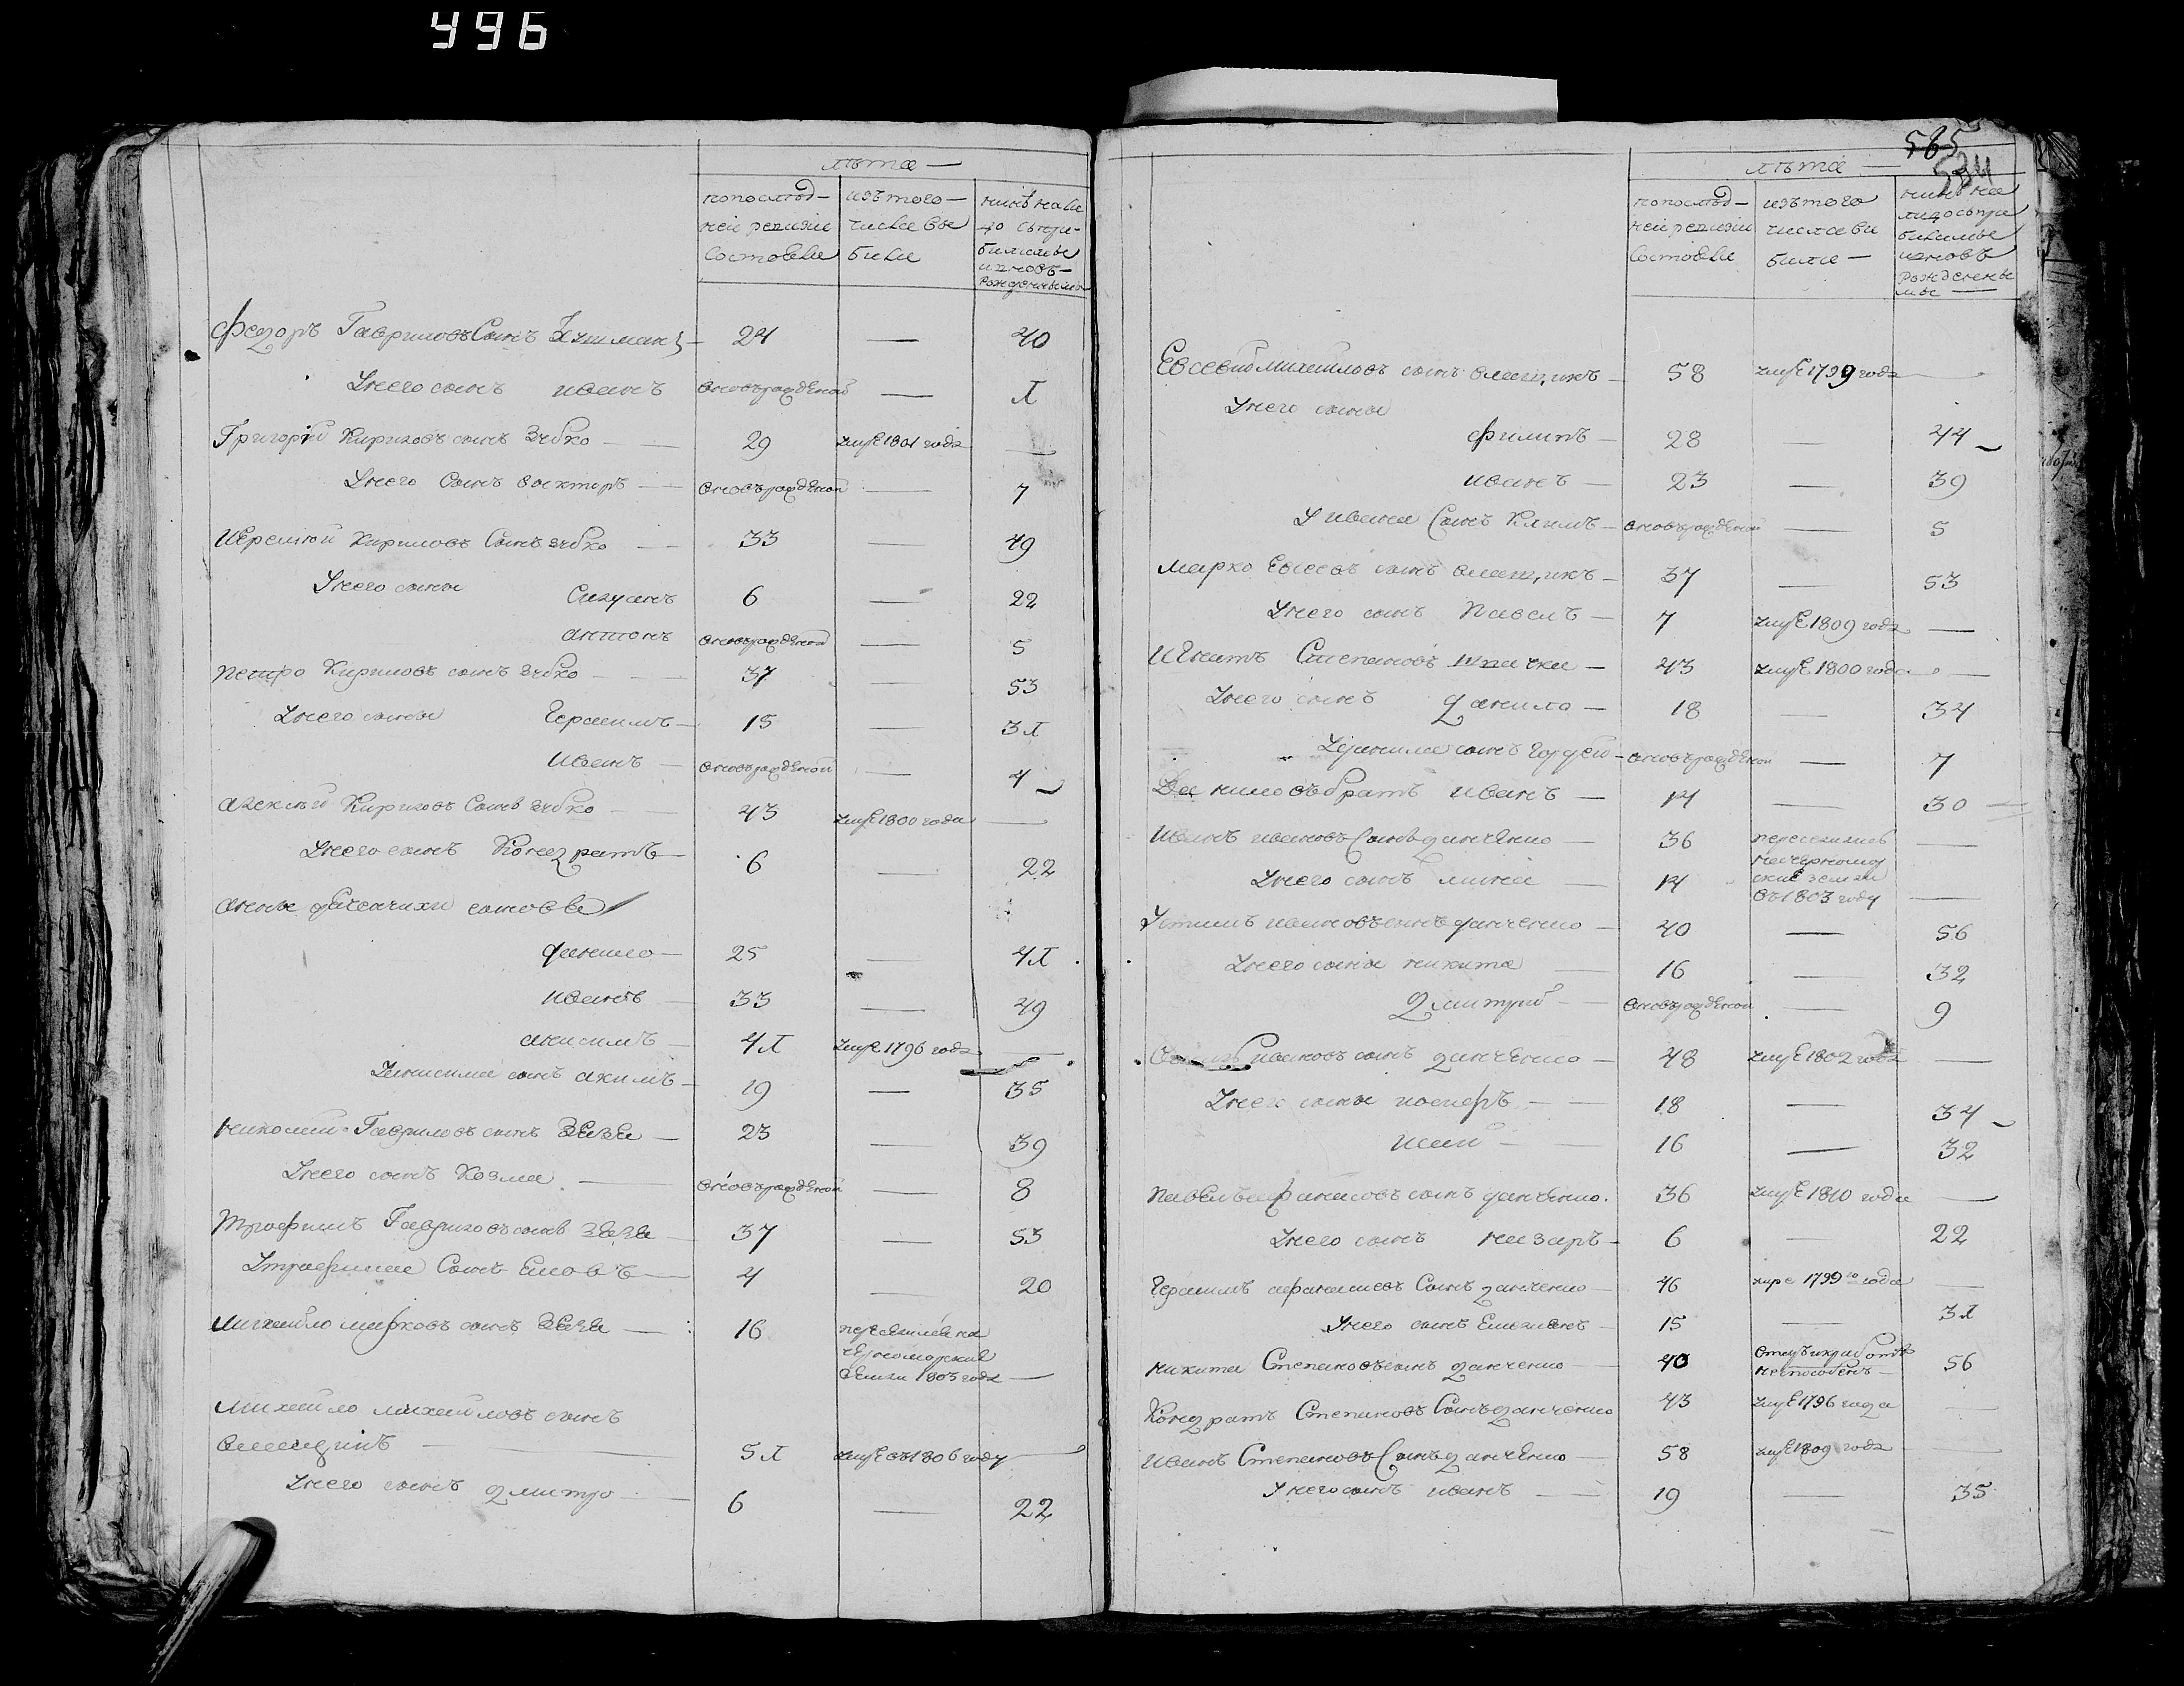 496
лѣта —
попослѣд-
ней ревизiи
состояли
изъ того
числа вы
были
нынѣ на ли
цо съ при-
былыми
и новъ-
рожденными
Федоръ Гавриловъ сынъ — 24 — 40
У него сынъ иванъ вновърожденой — 1
Григорiй Кириловъ сынъ Зубко — 29 умре 1801 года —
У него сынъ викторъ — вновърожденой — 7
Иеремiй Кириловъ сынъ зубко — 33 — 49
У него сыны
6 — 22
антонъ вновърожденой — 5
петро Кириловъ сынъ зубко — 37 — 53
У него сыны Герасимъ — 15 — 31
Иванъ — вновърожденой — 4
алексѣй Кириловъ сынъ зубко — 43 умре 1800 года —
У него сынъ Кондратъ — 6 — 22
анны сыновья
данило — 25 — 41
иванъ — 33 — 49
анисимъ — 41 умре 1796 года —
У анисима сынъ акимъ — 19 — 35
николай Гавриловъ сынъ — 23 — 39
У него сынъ Козма — вновърожденой — 8
Трофимъ Гавриловъ сынъ — 37 — 53
У трофима сынъ — 4 — 20
Михайло марковъ сынъ — 16 переселился на
черноморские
земли 1803 года —
Михайло михайловъ сынъ
— 51 умре въ 1806 году —
У него сынъ дмитро — 6 — 22
585
534
лѣта —
попослѣд-
ней ревизiи
состояли
изъ того
числа вы
были —
нынѣ на
лицо съ при
былыми
и новъ
рожденны
ми —
Евсевiй михайловъ сынъ — 58 умре 1799 года —
У него сыны
филипъ — 28 — 44
иванъ — 23 — 39
У ивана сынъ Климъ — вновърожденой — 5
Марко Евсеевъ сынъ — 37 — 53
У него сынъ Павелъ — 7 умре 1809 года —
Игнатъ Степановъ шпачка — 43 умре 1800 года —
У него сынъ данило — 18 — 34
У данила сынъ гордей — вновърожденой — 7
Даниловъ братъ иванъ — 14 — 30
Иванъ ивановъ сынъ данченко — 36 переселились
на черномор
ские земли
въ 1803 году
У него сынъ мина — 14 —
ивановъ сынъ данченко — 40 — 56
У него сыны никита — 16 — 32
дмитрiй — вновърожденой — 9
ивановъ сынъ данченко — 48 умре 1802 года —
У него сыны иосифъ — 18 — 34
исай — 16 — 32
Павелъ афанасовъ сынъ данченко. 36 умре 1810 года —
У него сынъ назаръ — 6 — 22
Герасимъ афанасиевъ сынъ данченко — 46 умре 1799 го года —
У него сынъ Емелианъ — 15 — 31
никита Степановъ сынъ данченко — 40 56
Кондратъ Степановъ сынъ данченко 43 умре 1796 года —
Иванъ Степановъ сынъ данченко — 58 умре 1809 года —
У него сынъ иванъ — 19 — 35